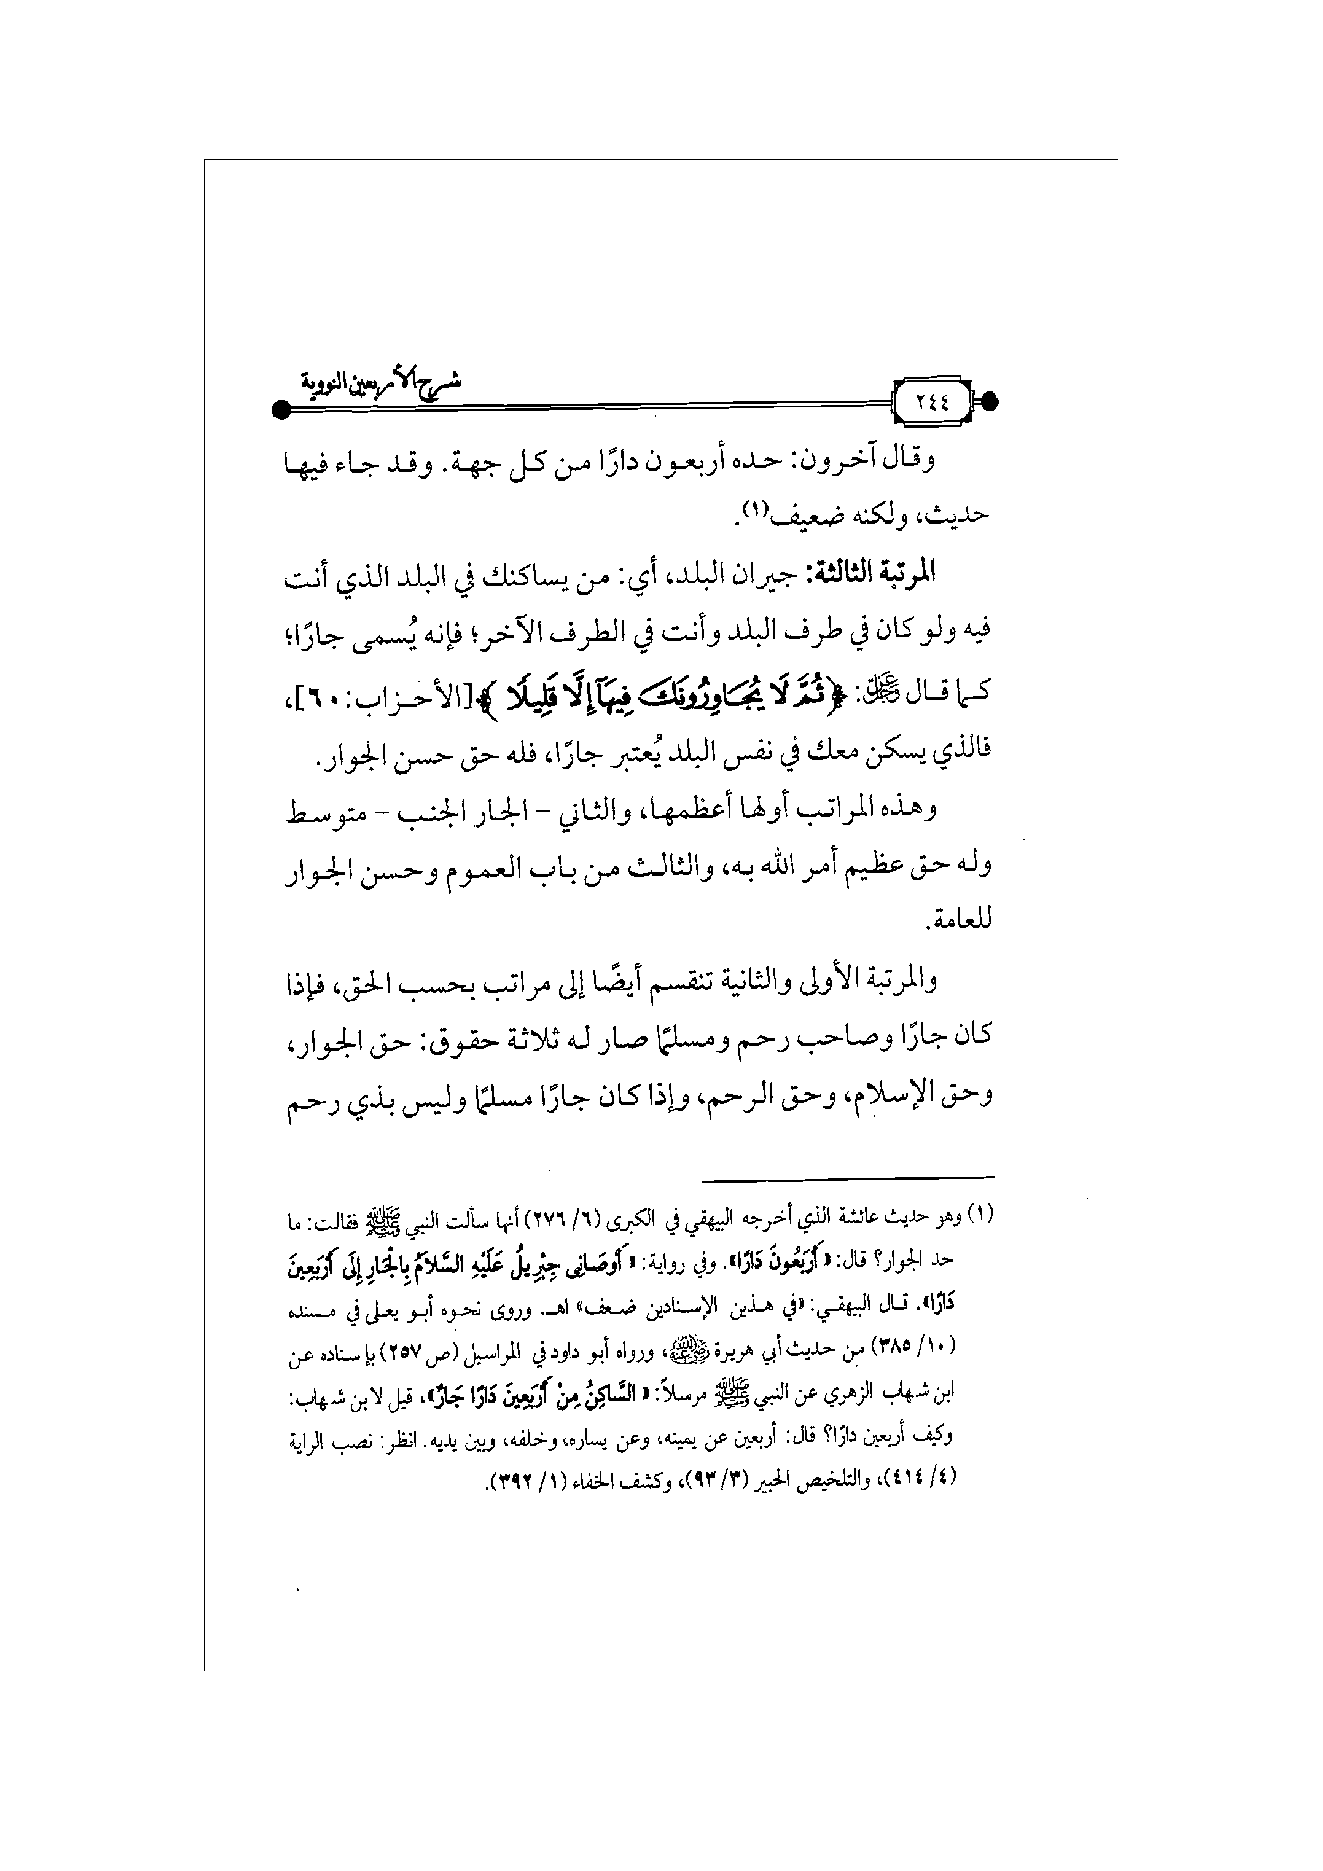 شرح الأربعين النووية
٢٤٤
وقال آخرون: حده أربعون دارًا من كل جهة. وقد جاء فيها
حديث، ولكنه ضعيف(١).
المرتبة الثالثة: جيران البلد، أي: من يساكنك في البلد الذي أنت
فيه ولو كان في طرف البلد وأنت في الطرف الآخر؛ فإنه يُسمى جارًا؛
كما قال ﷻ: ﴿ثُمَّ لَا يُجَاوِرُونَكَ فِيهَآ إِلَّا قَلِيلًا ﴾[الأحزاب: ٦٠]،
فالذي يسكن معك في نفس البلد يُعتبر جارًا، فله حق حسن الجوار.
وهذه المراتب أولها أعظمها، والثاني - الجار الجنب - متوسط
وله حق عظيم أمر الله به، والثالث من باب العموم وحسن الجوار
للعامة.
والمرتبة الأولى والثانية تنقسم أيضًا إلى مراتب بحسب الحق، فإذا
كان جارًا وصاحب رحم ومسلمًا صار له ثلاثة حقوق: حق الجوار،
وحق الإسلام، وحق الرحم، وإذا كان جارًا مسلمًا وليس بذي رحم
(١) وهو حديث عائشة الذي أخرجه البيهقي في الكبرى (٦/ ٢٧٦) أنها سألت النبي ﷺ فقالت: ما
حد الجوار؟ قال: «أَرْبَعُونَ دَارًا». وفي رواية: «أَوْصَانِى جِبْرِيلُ عَلَيْهِ السَّلَامُ بِالْجَارِ إِلَى أَرْبَعِينَ
دَارًا». قال البيهقي: «في هذين الإسنادين ضعف» اهـ. وروى نحوه أبو يعلى في مسنده
(١٠/ ٣٨٥) من حديث أبي هريرة ﵁، ورواه أبو داود في المراسيل (ص ٢٥٧) بإسناده عن
ابن شهاب الزهري عن النبي ﷺ مرسلاً: «السَّاكِنُ مِنْ أَرْبَعِينَ دَارًا جَارٌ»، قيل لابن شهاب:
وكيف أربعين دارًا؟ قال: أربعين عن يمينه، وعن يساره، وخلفه، وبين يديه. انظر: نصب الراية
(٤/ ٤١٤)، والتلخيص الحبير (٣/ ٩٣)، وكشف الخفاء (١/ ٣٩٢).